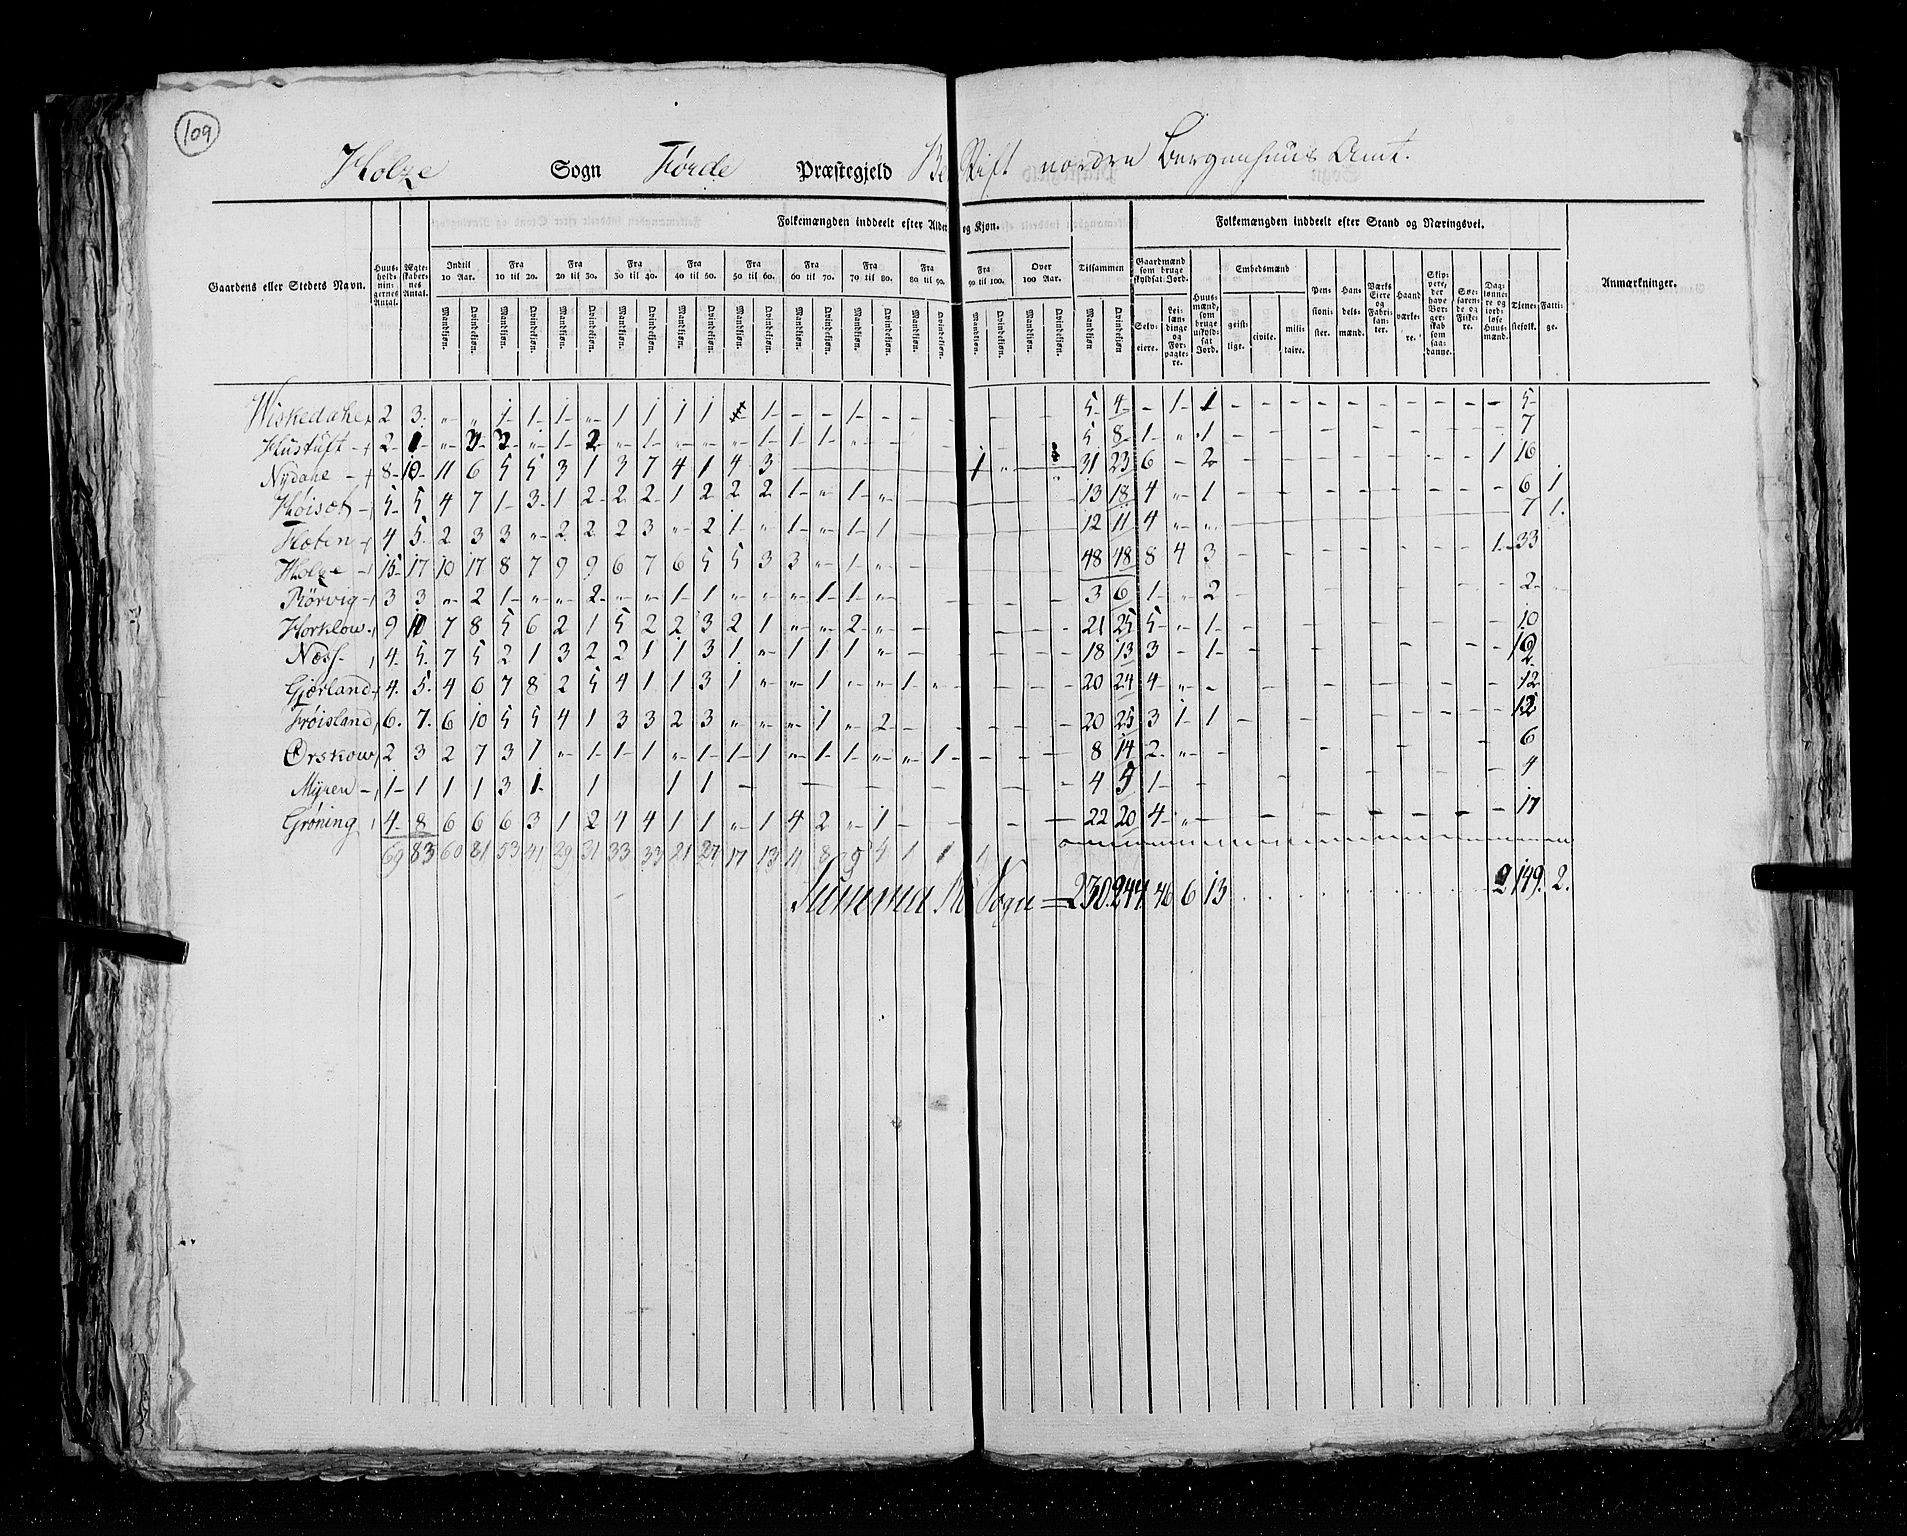 109
Holze Sogn Førde Præstegjeld Be Stift nordre Bergenhuus Amt.
Gaardens eller Stedets Navn. Huusholdningernes Antal. Ægteskabernes Antal. Folkemængden inddeelt efter Alder og Kjøn. Folkemængden inddeelt efter Stand og Næringsvei. Anmærkninger.
Indtil 10 Aar. Fra 10 til 20. Fra 20 til 30. Fra 30 til 40. Fra 40 til 50. Fra 50 til 60. Fra 60 til 70. Fra 70 til 80. Fra 80 til 90. Fra 90 til 100. Over 100 Aar. Tilsammen Gaardmænd som bruge skyldsat Jord. Huusmænd som bruge uskyldsat Jord. Embedsmænd Pensionister. Handelsmænd. Værks Eiere og Fabrikanter. Haandværkere. Skippere, der have Borgerskab som saadanne. Søefarende og Fiskere. Daglønnere og jordløse Huusmænd. Tienestefolk. Fattige.
Mandkiøn. Qvindekiøn. Mandkiøn. Qvindekiøn. Mandkiøn. Qvindekiøn. Mandkiøn. Qvindekiøn. Mandkiøn. Qvindekiøn. Mandkiøn. Qvindekiøn. Mandkiøn. Qvindekiøn. Mandkiøn. Qvindekiøn. Mandkiøn. Qvindekiøn. Mandkiøn. Qvindekiøn. Mandkiøn. Qvindekiøn. Mandkiøn. Qvindekiøn. Selveiere. Leilændinge og Forpagtere. geistlige. civile. militaire.
2 3 - - 1 1 1 - 1 1 1 1 1 - - 1 - - - 5 4 - 1 1 5
Hustuft 5 8 1 - 1 7
Nydahl 8 10 11 6 5 5 3 1 3 7 4 1 4 3 1 - 31 23 6 - 2 1 16
5 5 4 7 1 3 1 2 2 2 1 2 2 2 1 - 1 - 13 18 4 - 1 6 1
4 5 2 3 3 - 2 2 2 3 - 2 1 - 1 - 1 1 12 11 4 - - 7 1
Holze 15 17 10 17 8 7 9 9 6 7 6 5 5 3 3 - 1 - 48 48 8 4 3 1 33
Rörvig 3 3 - 2 1 - - 2 - 1 1 - - - - 1 1 - 3 6 1 - 2 2
Horklow 9 10 7 8 5 6 2 1 5 2 2 3 2 1 - - 2 - 21 25 5 - 1 10
Næss 4 5 7 5 2 1 3 2 2 1 1 3 1 - 1 1 1 - 18 13 3 - 1
Gjørland 4 5 4 6 7 8 2 5 4 1 1 3 1 - - 1 - - 1 - 20 24 4 - - 12
Frøisland 6 7 6 10 5 5 4 1 3 3 2 3 - - - 1 - 2 20 25 3 1 1 12
Ørskow 2 3 2 7 3 1 - 1 1 1 - 1 1 1 - 1 1 - - 1 8 14 2 - - 6
Myren 1 1 1 1 3 1 1 1 1 4 5 1 - 4
Grøning 4 8 6 6 6 3 1 2 4 4 1 1 - 1 4 2 - 1 22 20 4 - 17
69 83 60 81 53 41 29 31 33 33 21 27 17 13 11 8 9 4 1 1 1
Summa Sogn = 230 244 46 6 13 2 149. 2.